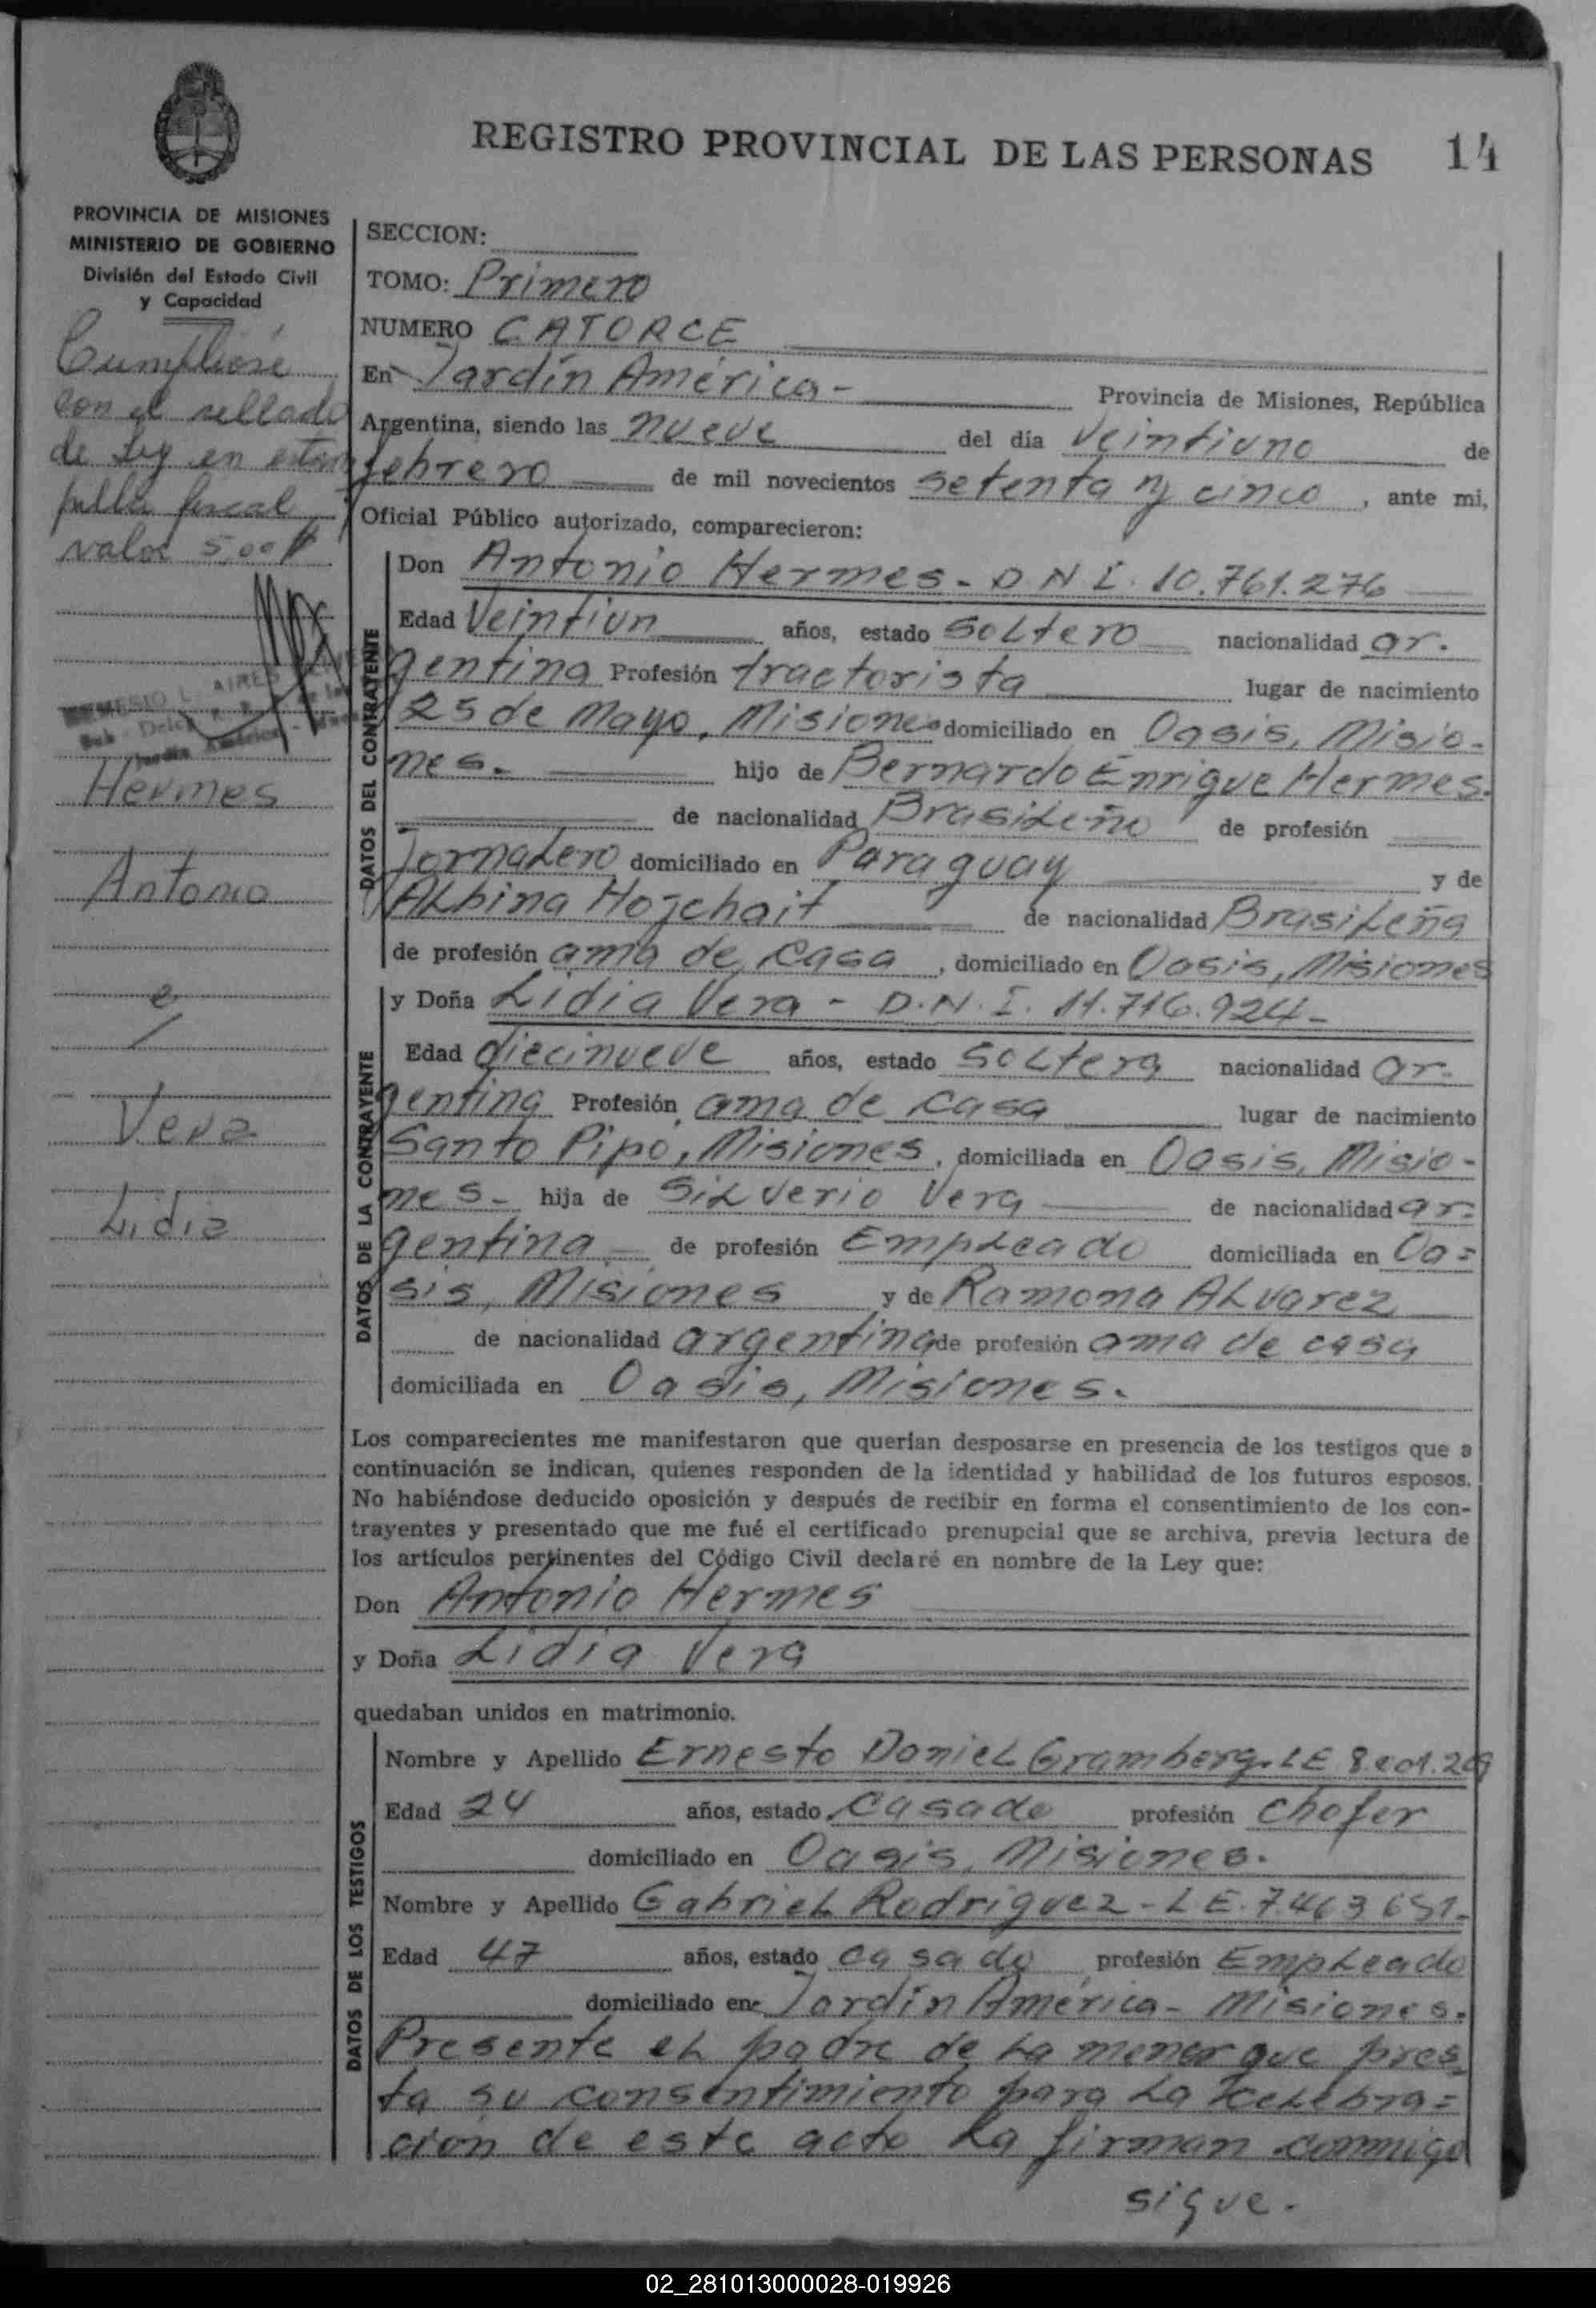 REGISTRO PROVINCIAL DE LAS PERSONAS 14
PROVINCIA DE MISIONES
MINISTERIO DE GOBIERNO
División del Estado Civil
y Capacidad
Cumpliose
con el sellado
de Ley en estam
pilla fiscal
valor 5,00 $
Hermes
Antonio
e/
Vera
Lidia
SECCION:
TOMO: Primero
NUMERO CATORCE
En Jardín América - Provincia de Misiones, República
Argentina, siendo las nueve del día veintiuno de
febrero de mil novecientos setenta y cinco, ante mi,
Oficial Público autorizado, comparecieron:
DATOS DEL CONTRAYENTE
Don Antonio Hermes - D N I. 10.761.276
Edad Veintiun años, estado soltero nacionalidad ar.
gentina Profesión tractorista lugar de nacimiento
25 de Mayo, Misiones domiciliado en Oasis, Misio-
nes. hijo de Bernardo Enrique Hermes.
de nacionalidad Brasileño de profesión
Jornalero domiciliado en Paraguay y de
Albina Hojchait de nacionalidad Brasileña
de profesión ama de casa, domiciliado en Oasis, Misiones
DATOS DE LA CONTRAYENTE
y Doña Lidia Vera - D.N.I. 11.716.924-
Edad diecinueve años, estado soltera nacionalidad ar-
gentina Profesión ama de casa lugar de nacimiento
Santo Pipo, Misiones, domiciliada en Oasis, Misio-
nes- hija de Silverio Vera de nacionalidad ar=
gentina de profesión Empleado domiciliada en Oa=
sis, Misiones y de Ramona Alvarez
de nacionalidad argentina de profesión ama de casa
domiciliada en Oasis, Misiones.
Los comparecientes me manifestaron que querían desposarse en presencia de los testigos que a
continuación se indican, quienes responden de la identidad y habilidad de los futuros esposos.
No habiéndose deducido oposición y después de recibir en forma el consentimiento de los con-
trayentes y presentado que me fué el certificado prenupcial que se archiva, previa lectura de
los artículos pertinentes del Código Civil declaré en nombre de la Ley que:
Don Antonio Hermes
y Doña Lidia Vera
quedaban unidos en matrimonio.
DATOS DE LOS TESTIGOS
Nombre y Apellido Ernesto Daniel Gramberg. LE
Edad 24 años, estado casado profesión chofer
domiciliado en Oasis, Misiones.
Nombre y Apellido Gabriel Rodriguez - L E. 7.463.651-
Edad 47 años, estado casado profesión Empleado
domiciliado en Jardín América - Misiones.
Presente el padre de la menor que pres
ta su consentimiento para la celebra=
ción de este acto la firman conmigo
sigue.
02_281013000028-019926